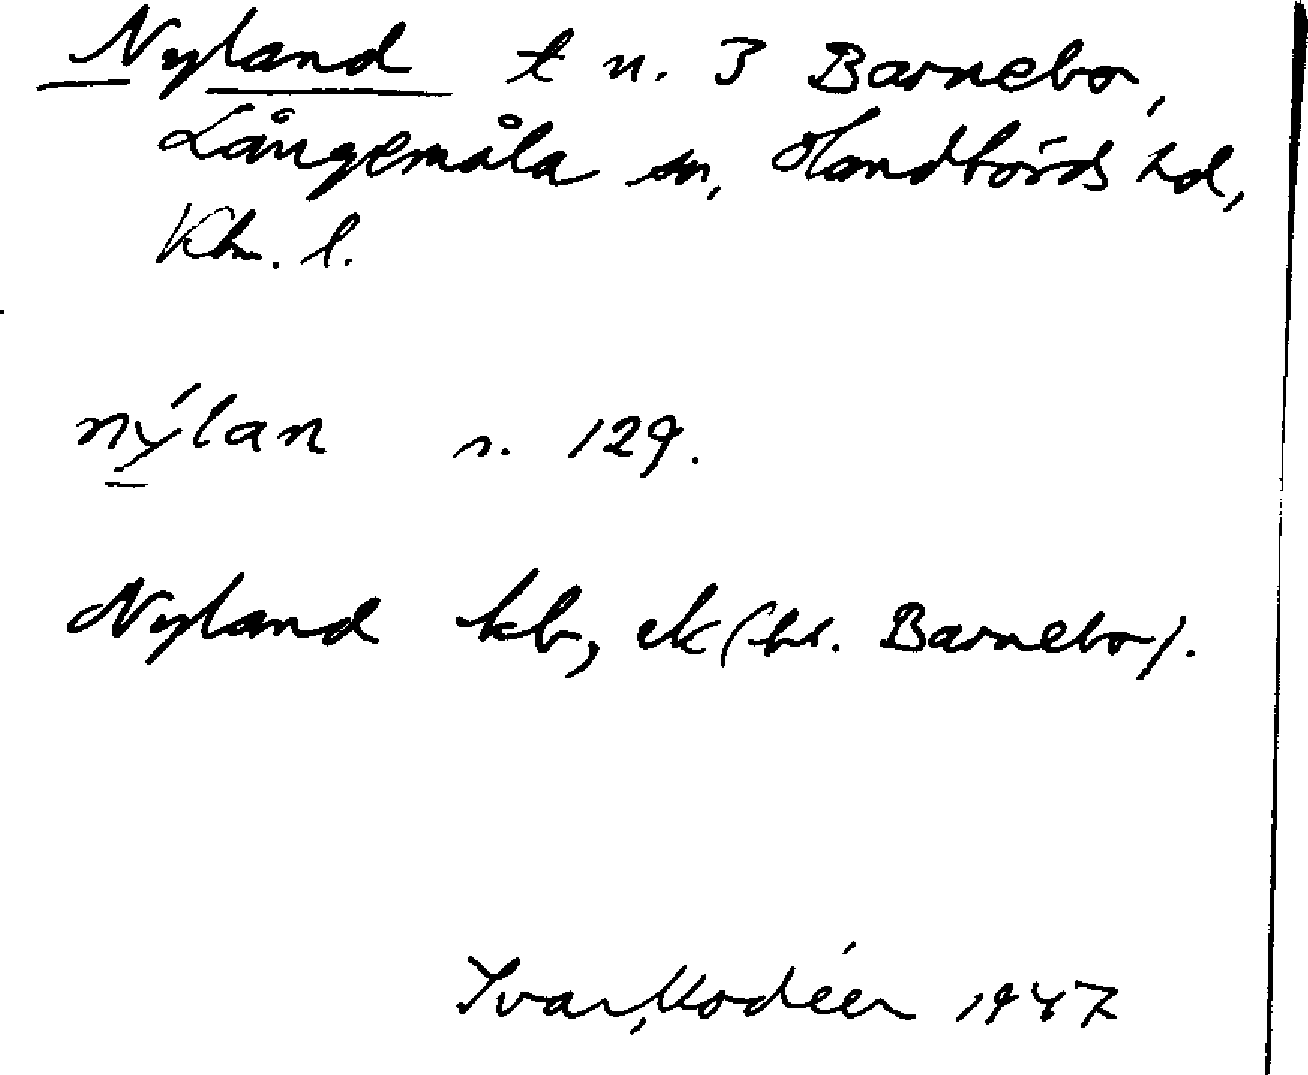 Nyland t n. 3 Barnebo,
Långemåla sn, Handbörds hd,
Klm. l.
nýlan s. 129.
Nyland kb, ek (hd. Barnebo).
Ivar Modéer 1947